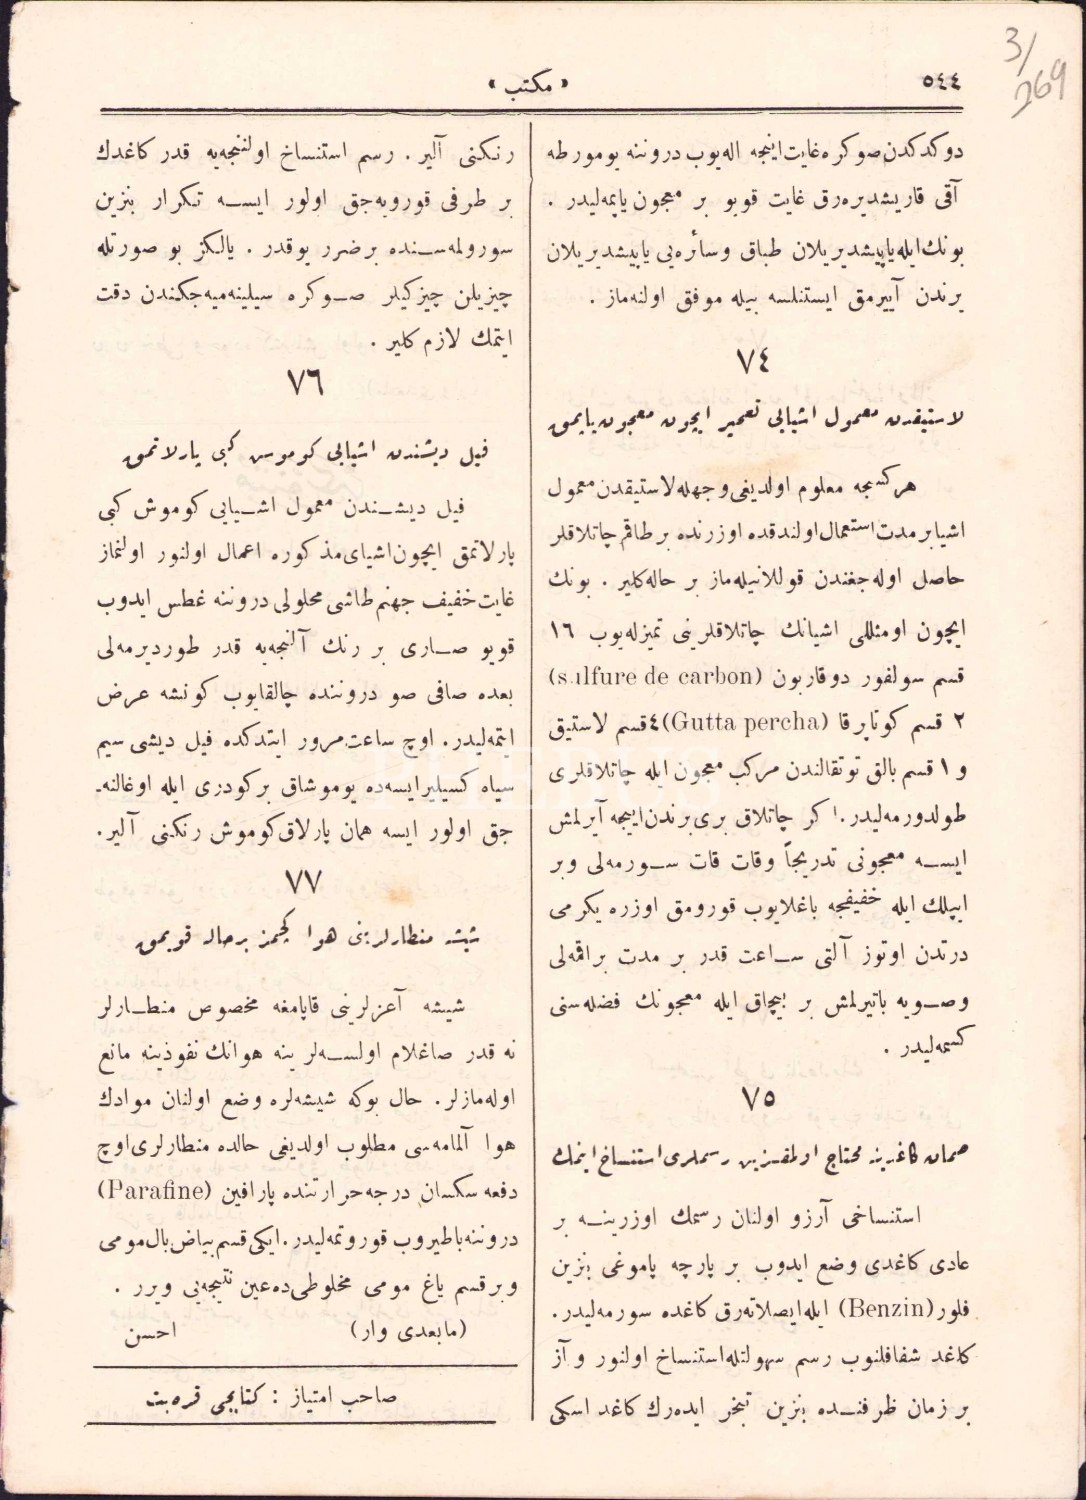 3/
269
٥٤٤
« مكتب »
دوكدكدن صوكره غايت اينجه اله‌يوب دروننه يومورطه
آقى قاريشديره‌رق غايت قويو بر معجون ياپمه‌ليدر .
بونك ايله ياپيشديريلان طباق وسائره‌يى ياپيشديريلان
يرندن آييرمق ايستنلسه بيله موفق اولنه‌ماز .
٧٤
لاستيقدن معمول اشيايى تعمير ايچون معجون ياپمق
هركسجه معلوم اولديغى وجهله لاستيقدن معمول
اشيا بر مدت استعمال اولندقده اوزرنده بر طاقم چاتلاقلر
حاصل اوله‌جغندن قوللانيله‌ماز بر حاله كلير . بونك
ايچون اومثللى اشيانك چاتلاقلرينى تميزله‌يوب ١٦
قسم سولفور دوقاربون (sulfure de carbon)
٢ قسم كوتاپرقا (Gutta percha) ٤ قسم لاستيق
و ١ قسم بالق توتقالندن مركب معجون ايله چاتلاقلرى
طولدورمه‌ليدر. اكر چاتلاق برى برندن اييجه آيرلمش
ايســه معجونى تدريجاً وقات قات ســورمه‌لى وبر
ايپلك ايله خفيفجه باغلايوب قورومق اوزره يكرمى
درتدن اوتوز آلتى ســاعت قدر بر مدت براقمه‌لى
وصــويه باتيرلمش بر بيچاق ايله معجونك فضله‌سنى
كسمه‌ليدر .
٧٥
صمان كاغدينه محتاج اولمقسزين رسملرى استنساخ ايتمك
استنساخى آرزو اولنان رسمك اوزرينــه بر
عادى كاغدى وضع ايدوب بر پارچه پاموغى بنزين
فلور (Benzin) ايله ايصلاته‌رق كاغده سورمه‌ليدر.
كاغد شفافلنوب رسم سهولتله استنساخ اولنور و آز
بر زمان ظرفنــده بنزين تبخر ايده‌رك كاغد اسكى
رنكنى آلير . رسم استنساخ اولننجه‌يه قدر كاغدك
بر طرفى قورويه‌جق اولور ايســه تكرار بنزين
سورولمه‌ســنده بر ضرر يوقدر . يالكز بو صورتله
چيزيلن چيزكيلر صــوكره سيلينه‌ميه‌جكندن دقت
ايتمك لازم كلير .
٧٦
فيل ديشندن اشيايى كوموس كبى پارلاتمق
فيل ديشــندن معمول اشــيايى كوموش كبى
پارلاتمق ايچون اشياى مذكوره اعمال اولنور اولنماز
غايت خفيف جهنم طاشى محلولى دروننه غطس ايدوب
قويو صــارى بر رنك آلنجه‌يه قدر طورديرمه‌لى
بعده صافى صو دروننده چالقايوب كونشه عرض
ايتمه‌ليدر. اوچ ساعت مرور ايتدكده فيل ديشى سيم
سياه كسيلير ايسه‌ده يوموشاق بر كودرى ايله اوغالنه‌-
جق اولور ايسه همان پارلاق كوموش رنكنى آلير.
٧٧
شيشه منطارلرينى هوا كچمز بر حاله قويمق
شيشه آغزلرينى قاپامغه مخصوص منطــارلر
نه قدر صاغلام اولســه‌لر ينه هوانك نفوذينه مانع
اوله‌مازلر. حال بوكه شيشه‌لره وضع اولنان موادك
هوا آلمامه‌سى مطلوب اولديغى حالده منطارلرى اوچ
دفعه سكسان درجه حرارتنده پارافين (Parafine)
دروننه باطيروب قوروتمه‌ليدر. ايكى قسم بياض بال مومى
وبر قسم ياغ مومى مخلوطى ده عين نتيجه‌يى ويرر .
(مابعدى وار) احسن
صاحب امتياز : كتابجى قره‌بت